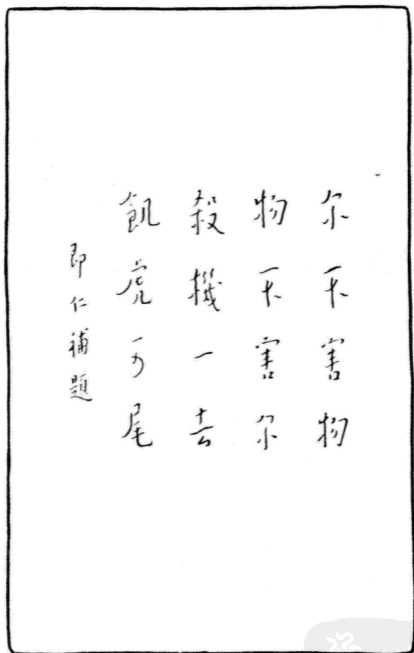 尔不害物
物不害尔
殺機一去
飢虎可尾
即仁補題